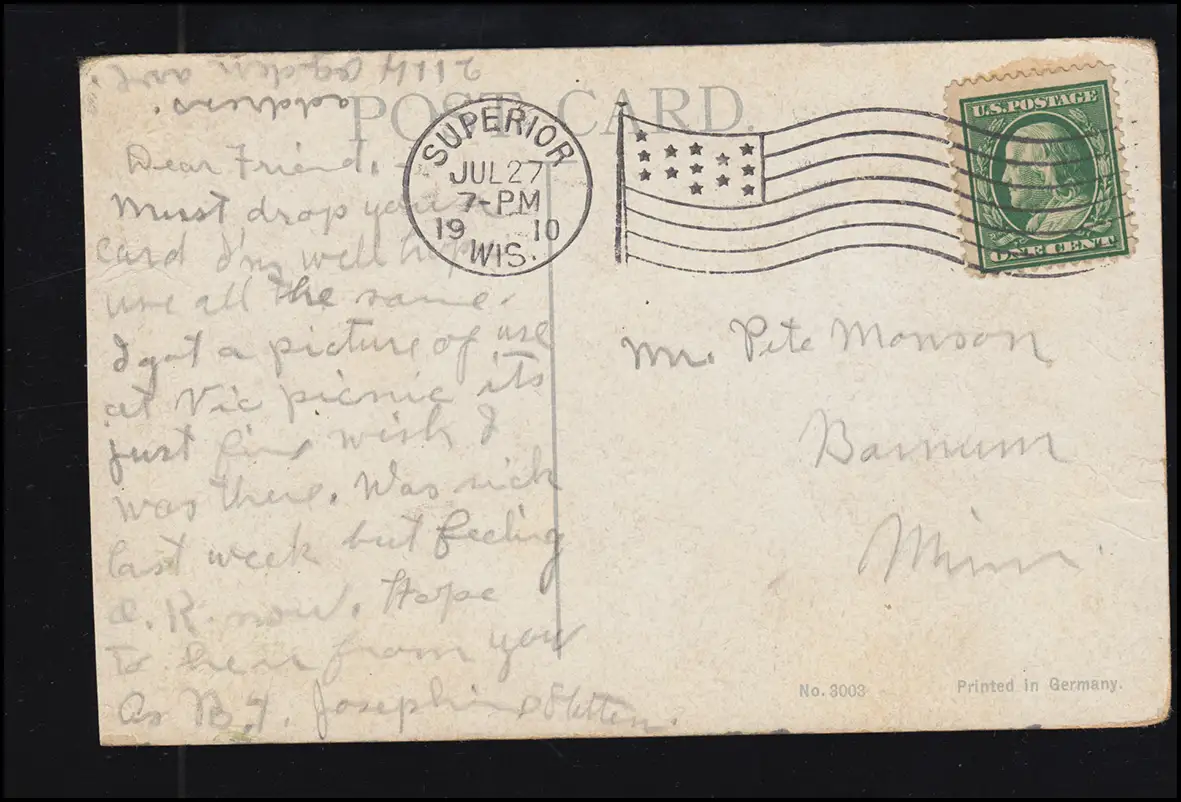 2114 Ogden ave.
address.
POST CARD.
SUPERIOR
JUL 27
7-PM
19 10
WIS.
U.S. POSTAGE
ONE CENT
Dear Friend. -
Must drop you
card I'm well hope
use all the same.
I got a picture of use
at Vic picnic its
just fine wish I
was there. Was sick
last week but feeling
O.K. now. Hope
to hear from you
As Josephine
Mr. Pete Monson
Barnum
Minn.
No. 3003
Printed in Germany.